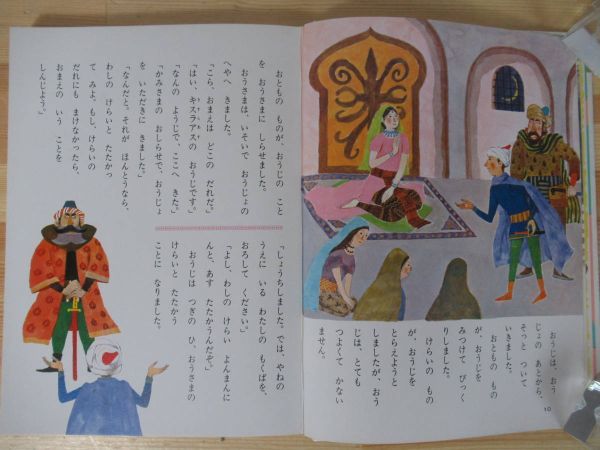 おうじは、おう
じょの あとから、
そっと ついて
いきました。
おともの もの
が、おうじを
みつけて びっく
りしました。
けらいの もの
が、おうじを
とらえようと
しましたが、おう
じは、とても
つよくて かない
ません。
10
おともの ものが、おうじの こと
を おうさまに しらせました。
おうさまは、いそいで おうじょの
へやへ きました。
「こら、おまえは どこの だれだ。」
「はい、キスラアスの おうじです。」
「なんの ようじで、ここへ きた。」
「かみさまの おしらせで、おうじょ
を いただきに きました。」
「なんだと。それが ほんとうなら、
わしの けらいと たたかっ
て みよ。もし、けらいの
だれにも まけなかったら、
おまえの いう ことを
しんじよう。」
「しょうちしました。では、やねの
うえに いる わたしの もくばを、
おろして ください。」
「よし、わしの けらい よんまんに
んと、あす たたかうんだぞ。」
おうじは つぎの ひ、おうさまの
けらいと たたかう
ことに なりました。